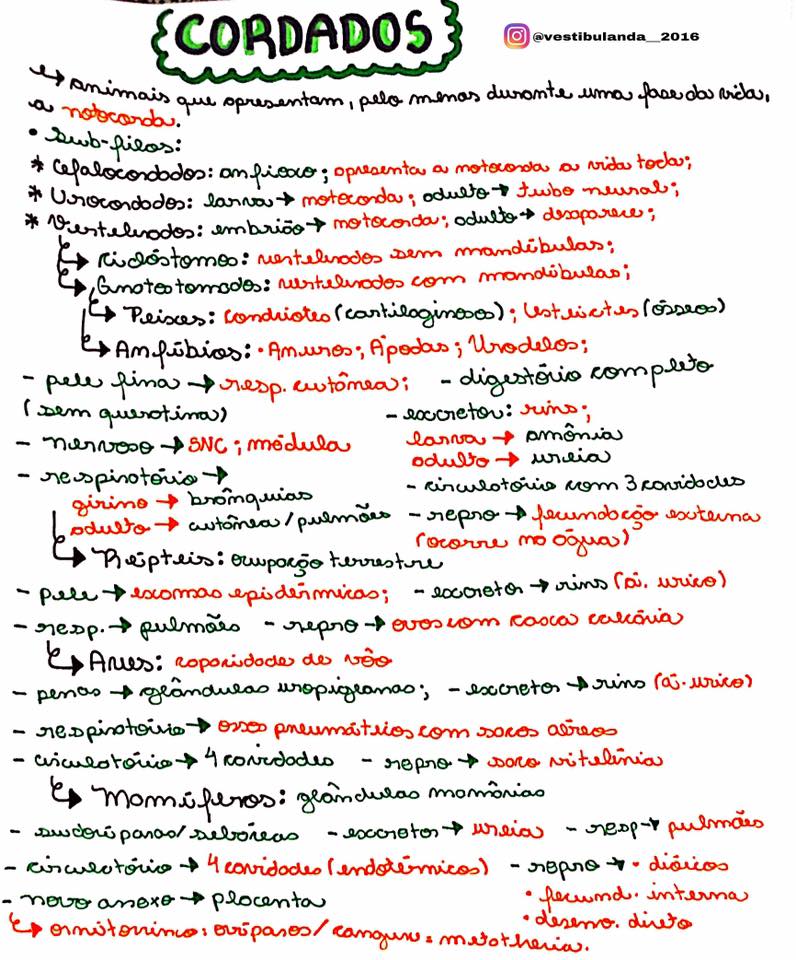 CORDADOS
@vestibulanda__2016
↳ animais que apresentam, pelo menos durante uma fase da vida,
a notocorda.
• Sub-filos:
* Cefalocordados: anfioxo; apresenta a notocorda a vida toda;
* Urocordados: larva → notocorda; adulto → tubo neural;
* Vertebrados: embrião → notocorda; adulto → desaparece;
↳ Ciclóstomos: vertebrados sem mandíbulas;
↳ Gnatostomados: vertebrados com mandíbulas;
↳ Peixes: condrictes (cartilaginosos); Osteictes (ósseo)
↳ Anfíbios: • Anuros; Ápodas; Urodelos;
- pele fina → resp. cutânea; - digestório completo
(sem queratina) - excretor: rins;
- nervoso → SNC; médula larva → amônia
adulto → ureia
- respiratório → - circulatório com 3 cavidades
girino → brânquias
adulto → cutânea/pulmões - repro → fecundação externa
(ocorre na água)
↳ Répteis: ocupação terrestre
- pele → escamas epidérmicas; - excretor → rins (ái. urico)
- resp. → pulmões - repro → ovos com casca calcária
↳ Aves: capacidade de vôo
- penas → glândulas uropigeanas; - excretor → rins (ái. urico)
- respiratório → ossos pneumáticos com sacos aéreos
- circulatório → 4 cavidades - repro → saco vitelínia
↳ Mamíferos: glândulas mamárias
- sudoríparas/sebáceas - excretor → ureia - resp → pulmões
- circulatório → 4 cavidades (endotérmicos) - repro → • dióicos
- novo anexo → placenta • fecund. interna
• desenv. direto
↳ ornitorrinco: ovíparos/ canguru: metatheria.